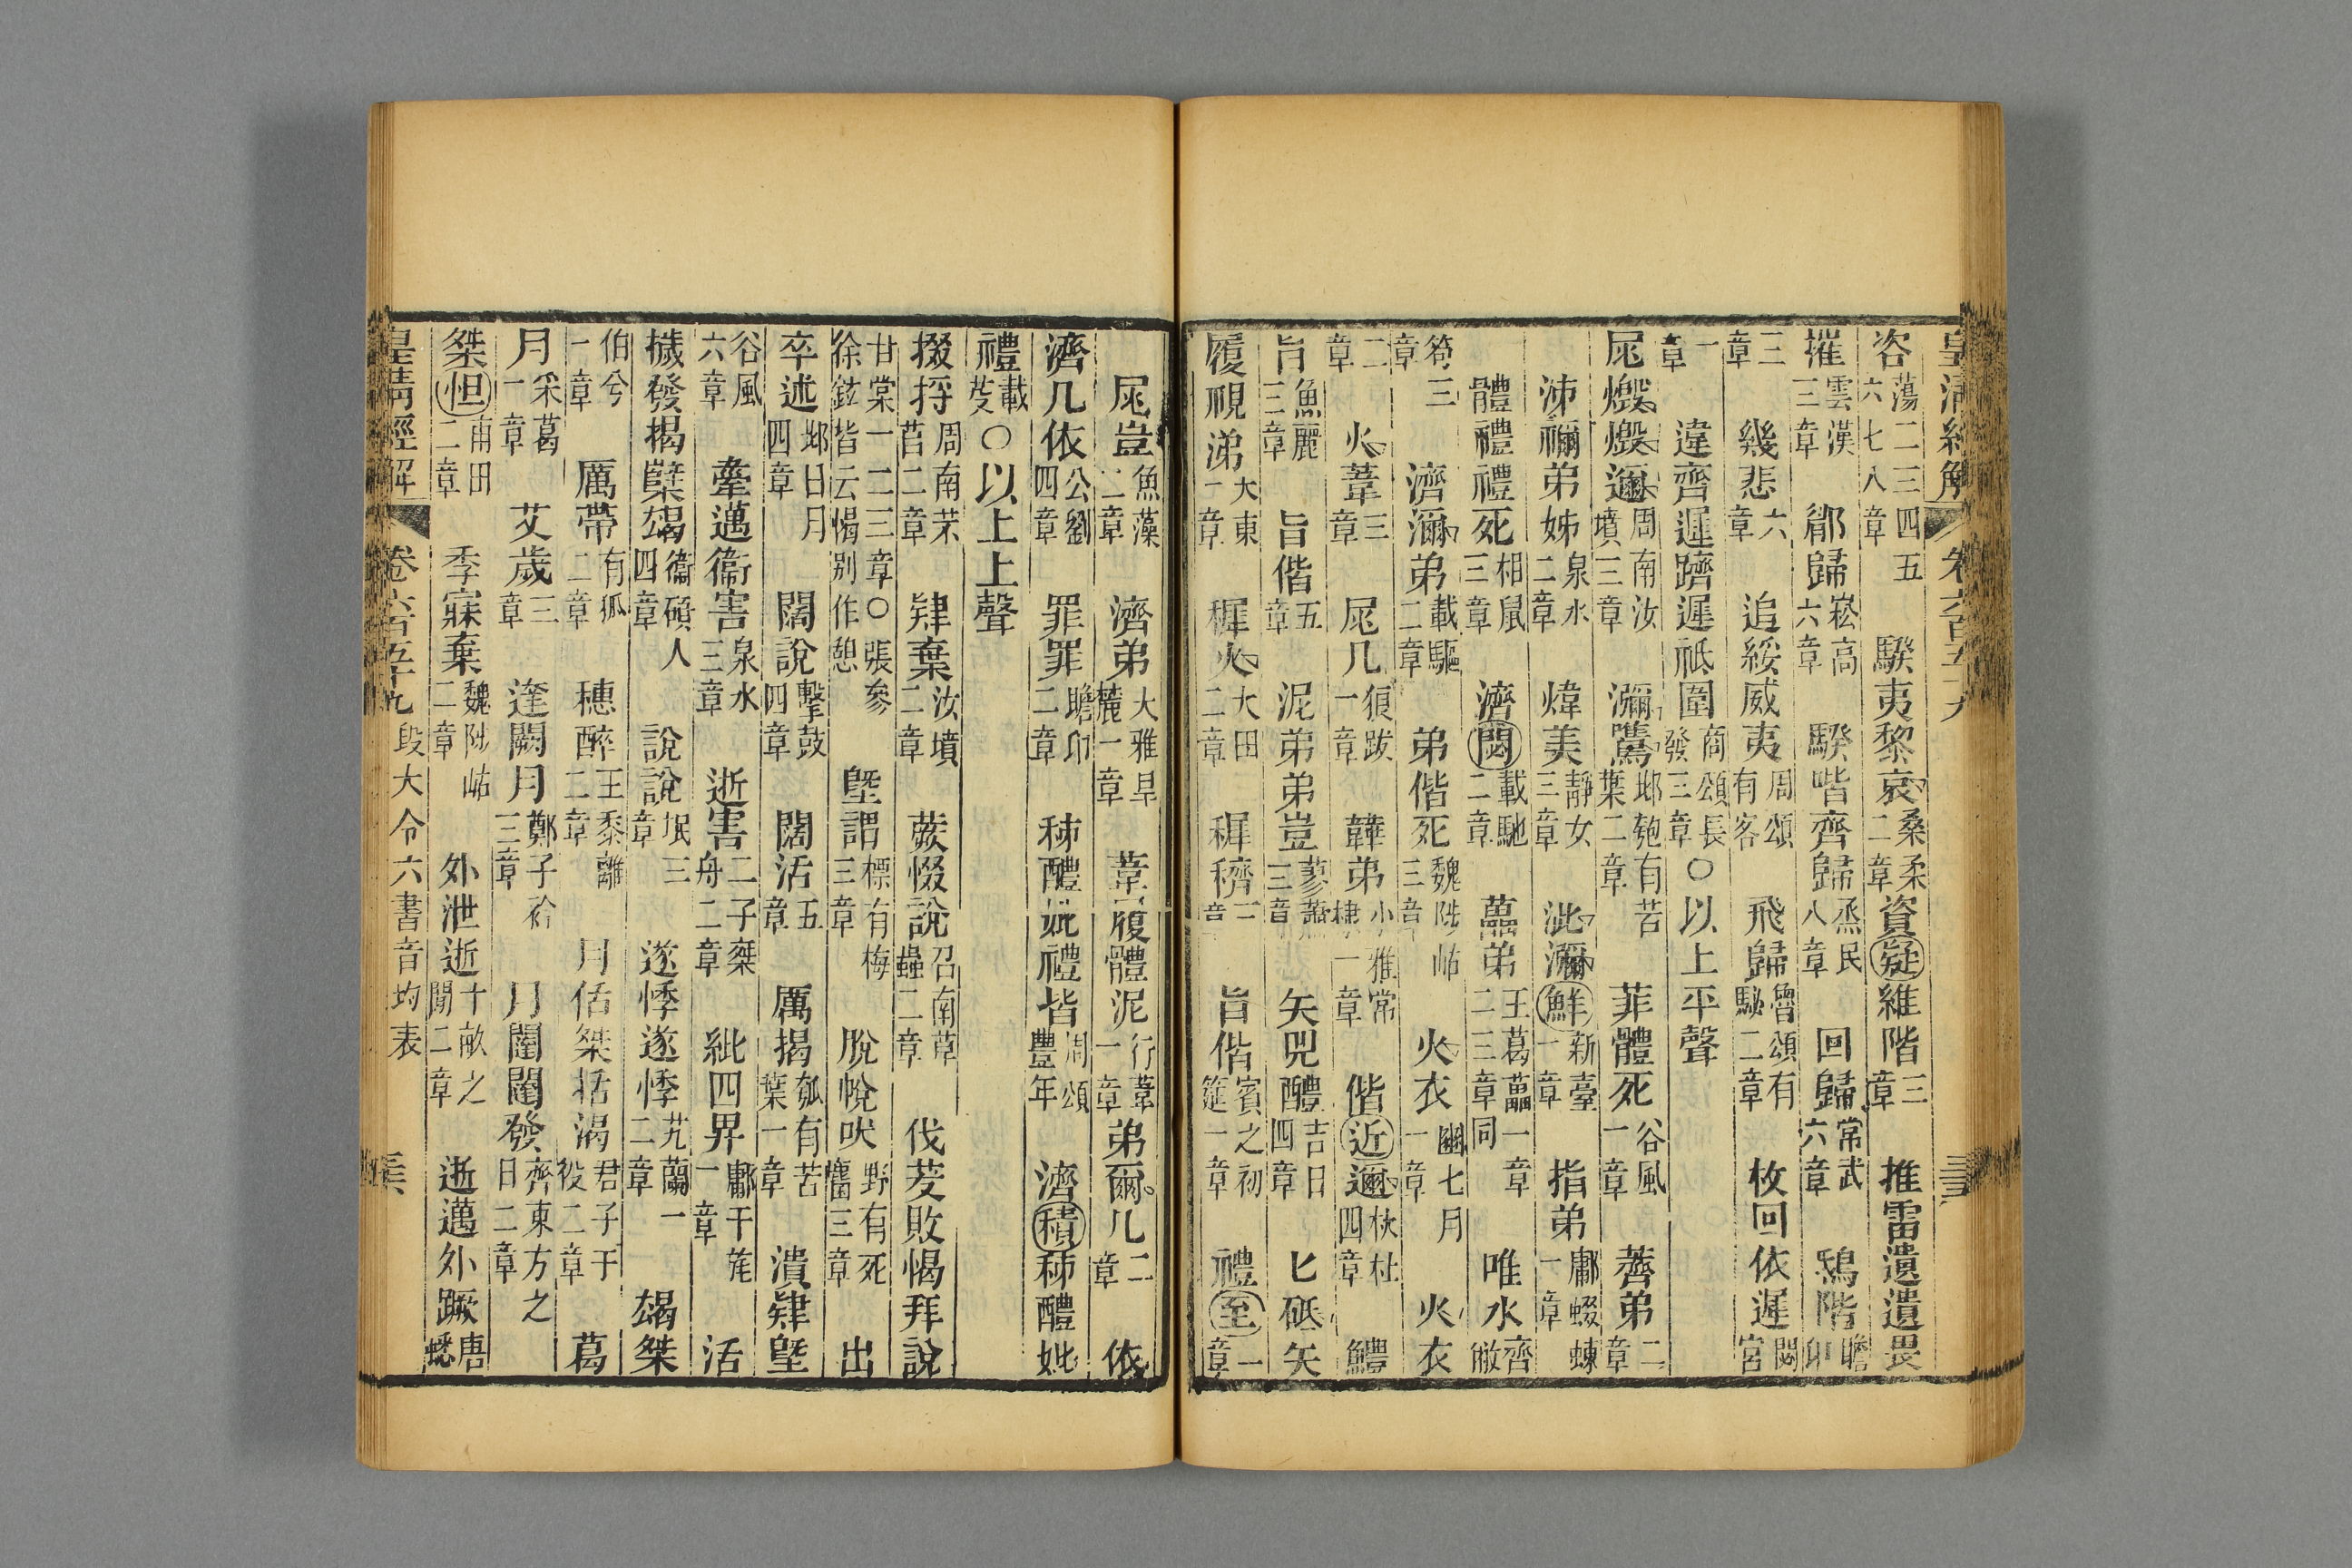 皇清經解 卷六百五十九
咨蕩二三四五六七八章 騤夷黎哀桑柔二章資疑維階三章 推雷遺遺畏
摧雲漢三章 郿歸崧高六章 騤喈齊歸烝民八章 回歸常武六章 鴟階瞻卬
三章 幾悲六章 追綏威夷周頌有客 飛歸魯頌有駜二章 枚回依遲閟宮
一章 違齊遲躋遲祗圍商頌長發三章○以上平聲
尾燬燬邇周南汝墳三章 瀰鷕邶匏有苦葉二章 菲體死谷風一章 薺弟二章
泲禰弟姊泉水二章 煒美靜女三章 泚瀰鮮新臺一章 指弟鄘蝃蝀一章
體禮禮死相鼠三章 濟閟載馳二章 藟弟王葛藟一章二三章同 唯水齊敝
笱三章 濟濔弟載驅二章 弟偕死魏陟岵三章 火衣豳七月一章 火衣
二章 火葦三章 尾几狼跋一章 韡弟小雅常棣一章 偕近邇杕杜四章 鱧
旨魚麗三章 旨偕五章 泥弟弟豈蓼蕭三章 矢兕醴吉日四章 匕砥矢
履視涕大東一章 穉火大田二章 穉穧三章 旨偕賓之初筵一章 禮至二章
尾豈魚藻二章 濟弟大雅旱麓一章 葦履體泥行葦一章弟爾几二章 依
濟几依公劉四章 罪罪瞻卬二章 秭醴妣禮皆周頌豐年 濟積秭醴妣
禮載芟○以上上聲
掇捋周南芣苢二章 肄棄汝墳二章 蕨惙說召南草蟲二章 伐茇敗愒拜說
甘棠一二三章○張參徐鉉皆云愒别作憩 墍謂摽有梅三章 脫帨吠野有死麕三章 出
卒述邶日月四章 闊說擊鼓四章 闊活五章 厲揭匏有苦葉一章 潰肄墍
谷風六章 舝邁衞害泉水三章 逝害二子乗舟二章 紕四畀鄘干旄一章 活
濊發揭孽朅衞碩人四章 說說氓三章 遂悸遂悸芄蘭一二章 朅桀
伯兮一章 厲帶有狐二章 穗醉王黍離二章 月佸桀括渴君子于役二章 葛
月采葛一章 艾歲三章 達闕月鄭子衿三章 月闥闥發齊東方之日二章
桀怛甫田二章 季寐棄魏陟岵二章 外泄逝十畝之閒二章 逝邁外蹶唐蟋
皇清經解 卷六百五十九 段大令六書音均表